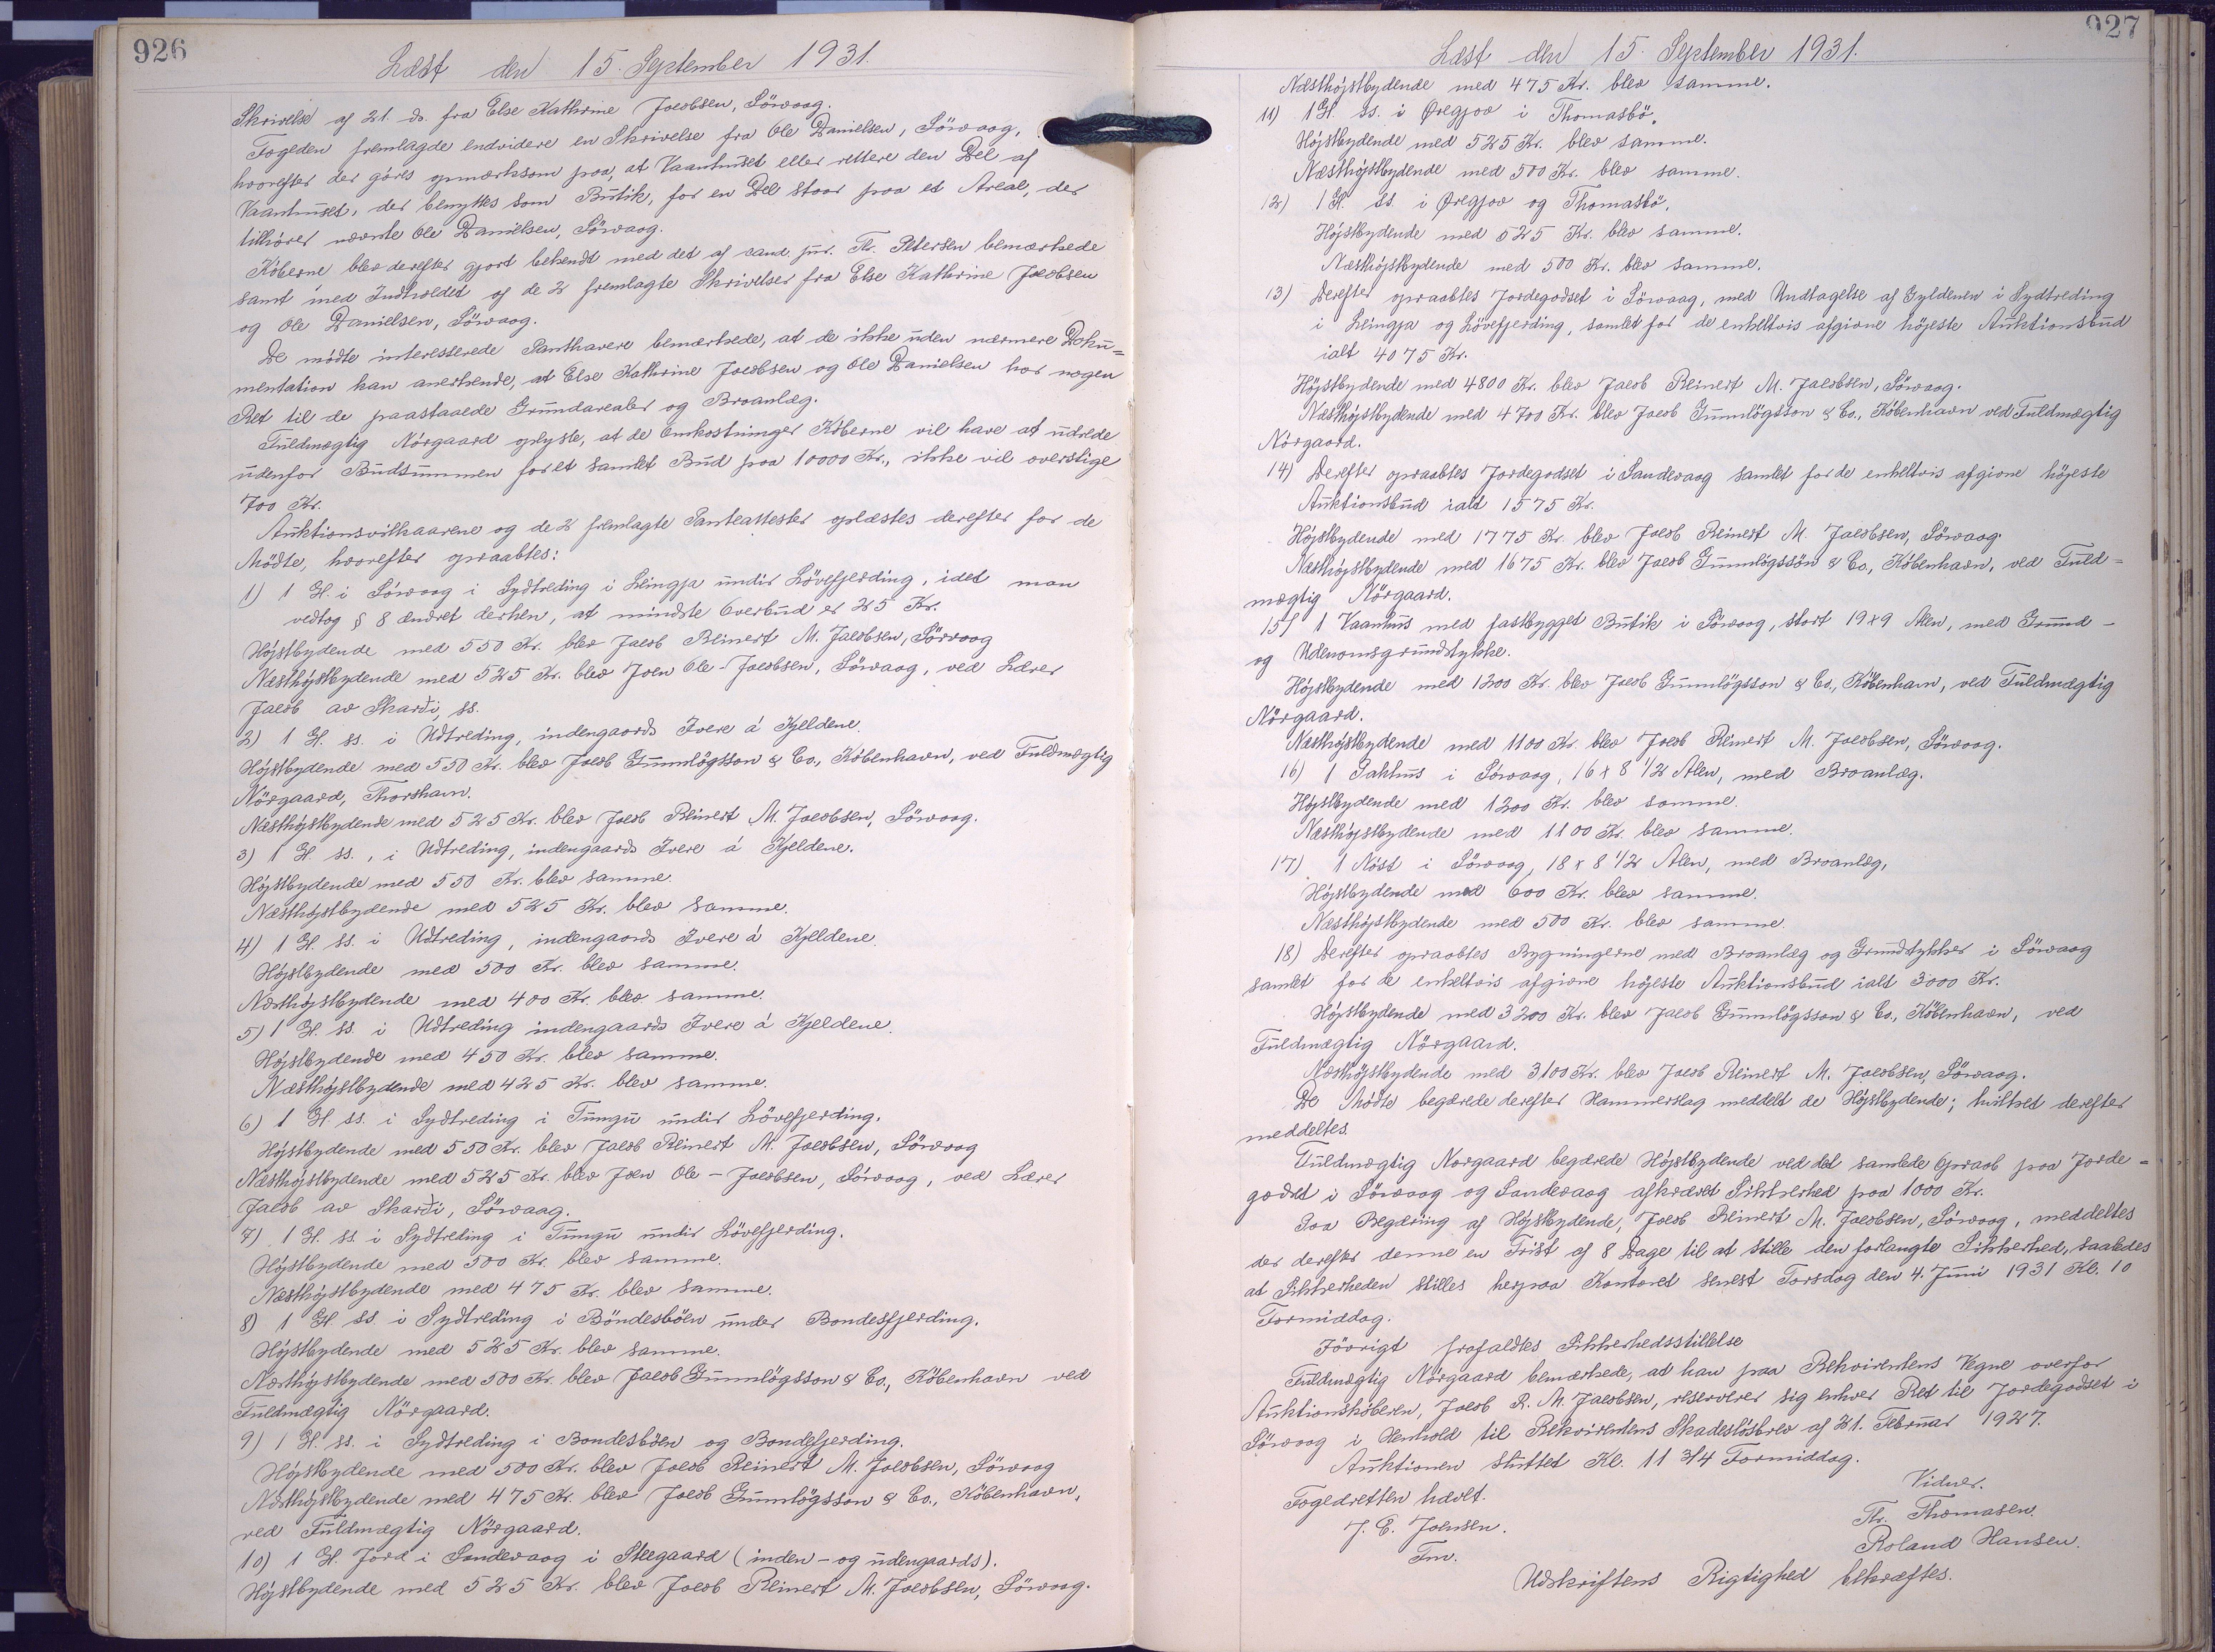 926
Læst den 15. September 1931.
Skrivelse af 21. ds. fra Else Kathrine Jacobsen, Sörvaag.
Fogeden fremlagde endvidere en Skrivelse fra Ole Danielsen, Sörvaag,
hvorefter der göres opmærksom paa, at Vaanhuset eller rettere den Del af
Vaanhuset, der benyttes som Butik, for en Del staar paa et Areal, der
tilhörer nævnte Ole Danielsen, Sörvaag.
Köberne blev derefter gjort bekendt med det af cand. jur. Th. Petersen bemærkede
samt med Indholdet af de 2 fremlagte Skrivelser fra Else Kathrine Jacobsen
og Ole Danielsen, Sörvaag.
De mödte interesserede Panthavere bemærkede, at de ikke uden nærmere Doku=
mentation kan anerkende, at Else Kathrine Jacobsen og Ole Danielsen har nogen
Ret til de paastaaede Grundarealer og Broanlæg.
Fuldmægtig Nörgaard oplyste, at de Omkostninger Köberne vil have at udrede
udenfor Budsummen for et samlet Bud paa 10000 Kr., ikke vil overstige
700 Kr.
Auktionsvilkaarene og de 2 fremlagte Panteattester oplæstes derefter for de
Mödte, hvorefter opraabtes:
1) 1 G. i Sörvaag i Sydtreding i Leingja undir Lövefjerding, idet man
vedtog § 8 ændret derhen, at mindste Overbud er 25 Kr.
Höjstbydende med 550 Kr. blev Jacob Reinert M. Jacobsen, Sörvaag
Næsthöjstbydende med 525 Kr. blev Joen Ole-Jacobsen, Sörvaag, ved Lærer
Jacob av Skarði, ss.
2) 1 G. ss. i Udtreding, indengaards Ivere á Kjeldene.
Höjstbydende med 550 Kr. blev Jacob Gunnlögsson & Co., Köbenhavn, ved Fuldmægtig
Nörgaard, Thorshavn.
Næsthöjstbydende med 525 Kr. blev Jacob Reinert M. Jacobsen, Sörvaag.
3) 1 G. ss., i Udtreding, indengaards Ivere á Kjeldene.
Höjstbydende med 550 Kr. blev samme.
Næsthöjstbydende med 525 Kr. blev samme.
4) 1 G. ss. i Udtreding, indengaards Ivere á Kjeldene.
Höjstbydende med 500 Kr. blev samme.
Næsthöjstbydende med 400 Kr. blev samme.
5) 1 G. ss. i Udtreding indengaards Ivere á Kjeldene.
Höjstbydende med 450 Kr. blev samme.
Næsthöjstbydende med 425 Kr. blev samme.
6) 1 G. ss. i Sydtreding i Tungu undir Lövefjerding.
Höjstbydende med 550 Kr. blev Jacob Reinert M. Jacobsen, Sörvaag
Næsthöjstbydende med 525 Kr. blev Joen Ole-Jacobsen, Sörvaag, ved Lærer
Jacob av Skarði, Sörvaag.
7) 1 G. ss. i Sydtreding i Tungu undir Lövefjerding.
Höjstbydende med 500 Kr. blev samme.
Næsthöjstbydende med 475 Kr. blev samme.
8) 1 G. ss. i Sydtreding i Böndesböen under Bondesfjerding.
Höjstbydende med 525 Kr. blev samme.
Næsthöjstbydende med 500 Kr. blev Jacob Gunnlögsson & Co., Köbenhavn ved
Fuldmægtig Nörgaard.
9) 1 G. ss. i Sydtreding i Bondesböen og Bondefjerding.
Höjstbydende med 500 Kr. blev Jacob Reinert M. Jacobsen, Sörvaag
Næsthöjstbydende med 475 Kr. blev Jacob Gunnlögsson & Co., Köbenhavn,
ved Fuldmægtig Nörgaard.
10) 1 G. Jord i Sandevaag i Steegaard (inden- og udengaards).
Höjstbydende med 525 Kr. blev Jacob Reinert M. Jacobsen, Sörvaag.
927
Læst den 15. September 1931.
Næsthöjstbydende med 475 Kr. blev samme.
11) 1 G. ss. i Øregjov i Thomasbö.
Höjstbydende med 525 Kr. blev samme.
Næsthöjstbydende med 500 Kr. blev samme.
12) 1 G. ss. i Øregjov og Thomasbö.
Höjstbydende med 525 Kr. blev samme.
Næsthöjstbydende med 500 Kr. blev samme.
13) Derefter opraabtes Jordegodset i Sörvaag, med Undtagelse af Gyldenen i Sydtreding
i Leingja og Lövefjerding, samlet for de enkeltvis afgivne höjeste Auktionsbud
ialt 4075 Kr.
Höjstbydende med 4800 Kr. blev Jacob Reinert M. Jacobsen, Sörvaag.
Næsthöjstbydende med 4700 Kr. blev Jacob Gunnlögsson & Co., Köbenhavn ved Fuldmægtig
Nörgaard.
14) Derefter opraabtes Jordegodset i Sandevaag samlet for de enkeltvis afgivne höjeste
Auktionsbud ialt 1575 Kr.
Höjstbydende med 1775 Kr. blev Jacob Reinert M. Jacobsen, Sörvaag.
Næsthöjstbydende med 1675 Kr. blev Jacob Gunnlögssön & Co., Köbenhavn, ved Fuld=
mægtig Nörgaard.
15) 1 Vaanhus med fastbygget Butik i Sörvaag, stort 19 x 9 Alen, med Grund-
og Udenomsgrundstykke.
Höjstbydende med 1200 Kr. blev Jacob Gunnlögsson & Co., Köbenhavn, ved Fuldmægtig
Nörgaard.
Næsthöjstbydende med 1100 Kr. blev Jacob Reinert M. Jacobsen, Sörvaag.
16) 1 Pakhus i Sörvaag, 16 x 8 1/2 Alen, med Broanlæg.
Höjstbydende med 1200 Kr. blev samme.
Næsthöjstbydende med 1100 Kr. blev samme.
17) 1 Nöst i Sörvaag, 18 x 8 1/2 Alen, med Broanlæg,
Höjstbydende med 600 Kr. blev samme.
Næsthöjstbydende med 500 Kr. blev samme.
18) Derefter opraabtes Bygningerne med Broanlæg og Grundstykker i Sörvaag
samlet for de enkeltvis afgivne höjeste Auktionsbud ialt 3000 Kr.
Höjstbydende med 3200 Kr. blev Jacob Gunnlögsson & Co., Köbenhavn, ved
Fuldmægtig Nörgaard.
Næsthöjstbydende med 3100 Kr. blev Jacob Reinert M. Jacobsen, Sörvaag.
De Mödte begærede derefter Hammerslag meddelt de Höjstbydende; hvilket derefter
meddeltes.
Fuldmægtig Norgaard begærede Höjstbydende ved det samlede Opraab paa Jorde=
godset i Sörvaag og Sandevaag afkrævet Sikkerhed paa 1000 Kr.
Paa Begæring af Höjstbydende, Jacob Reinert M. Jacobsen, Sörvaag, meddeltes
der derefter denne en Frist af 8 Dage til at stille den forlangte Sikkerhed, saaledes
at Sikkerheden stilles herpaa Kontoret senest Torsdag den 4. Juni 1931 Kl. 10
Formiddag.
Jövrigt frafaldtes Sikkerhedsstillelse
Fuldmægtig Nörgaard bemærkede, at han paa Rekvirentens Vegne overfor
Auktionsköberen, Jacob R. M. Jacobsen, reserverer sig enhver Ret til Jordegodset i
Sörvaag i Henhold til Rekvirentens Skadeslösbrev af 21. Februar 1927.
Auktionen sluttet Kl. 11 3/4 Formiddag.
Fogedretten hævet.
Vidner.
J. E. Joensen.
Th. Thomasen.
Fm.
Roland Hansen.
Udskriftens Rigtighed bekræftes.